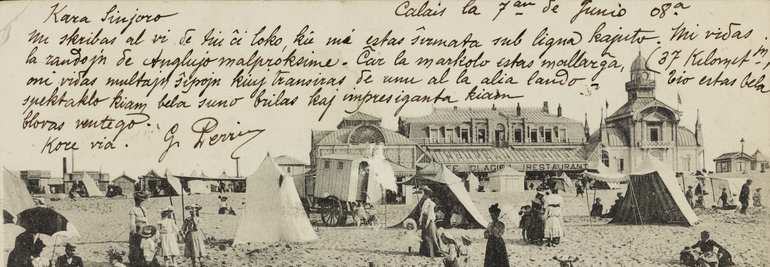 Kara Sinjoro
Calais la 7an de Junio 08a
Mi skribas al vi de tiu ĉi loko, kie mi estas ŝirmata sub ligna kajuto. Mi vidas
la zandojn de Anglujo malproksime. Ĉar la markolo estas mallarĝa, (37 Kilomet.)
oni vidas multajn ŝipojn kiuj transiras de unu al la alia lando. Tio estas bela
spektaklo kiam bela suno brilas kaj impresiganta kiam
blovas ventego.
Kore via.
G. Perrin
GLACIER RESTAURANT